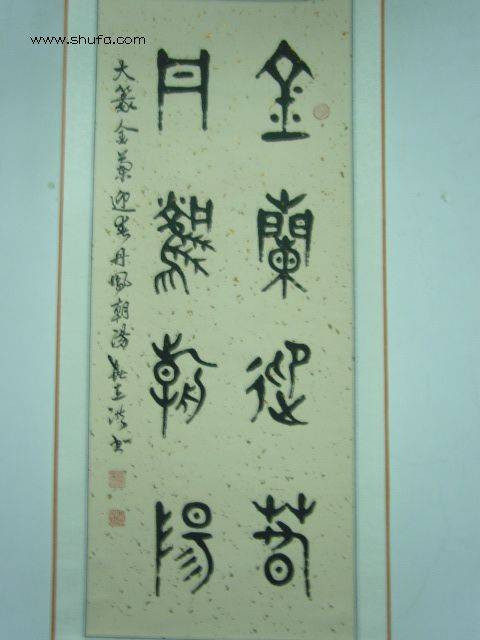 www.shufa.com
金蘭迎春
丹鳳朝陽
大篆金蘭迎春丹鳳朝陽